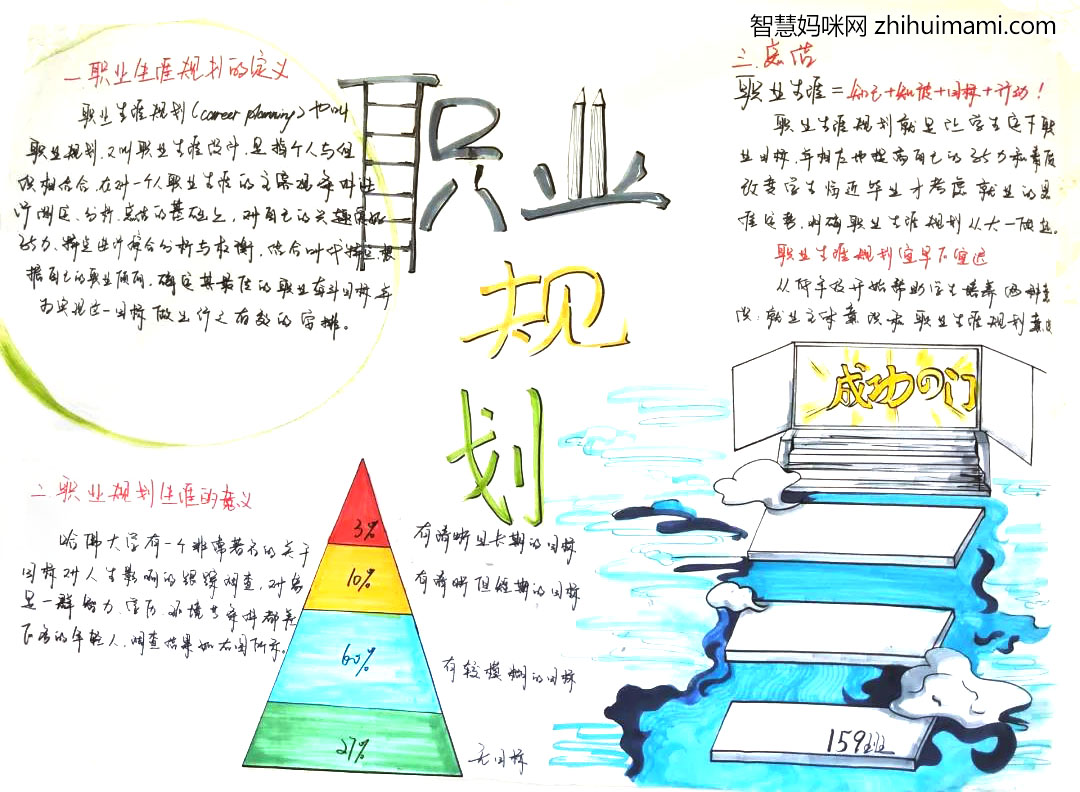 智慧妈咪网 zhihuimami.com
一.职业生涯规划的定义
职业生涯规划(career planning)也叫
职业规划.又叫职业生涯设计,是指个人与组
织相结合,在对一个人职业生涯的主客观条件进
行测定、分析、总结的基础上,对自己的兴趣爱好
能力、特定进行综合分析与权衡,结合时代特点,根
据自己的职业倾向,确定其最佳的职业奋斗目标,并
为实现这一目标做出行之有效的安排。
职业
规
划
三.总结
职业生涯=知己+知彼+目标+行动!
职业生涯规划就是让学生定下职
业目标,并相应地提高自己的能力和素质
改变学生临近毕业才考虑就业的思
维定势,明确职业生涯规划从大一做起.
职业生涯规划宜早不宜迟
从低年级开始帮助学生培养两种意
识:就业主体意识和职业生涯规划意识
成功の门
二.职业规划生涯的意义
哈佛大学有一个非常著名的关于
目标对人生影响的跟踪调查,对象
是一群智力、学历、环境等条件都差
不多的年轻人,调查结果如右图所示。
3% 有清晰且长期的目标
10% 有清晰但短期的目标
60% 有较模糊的目标
27% 无目标
159